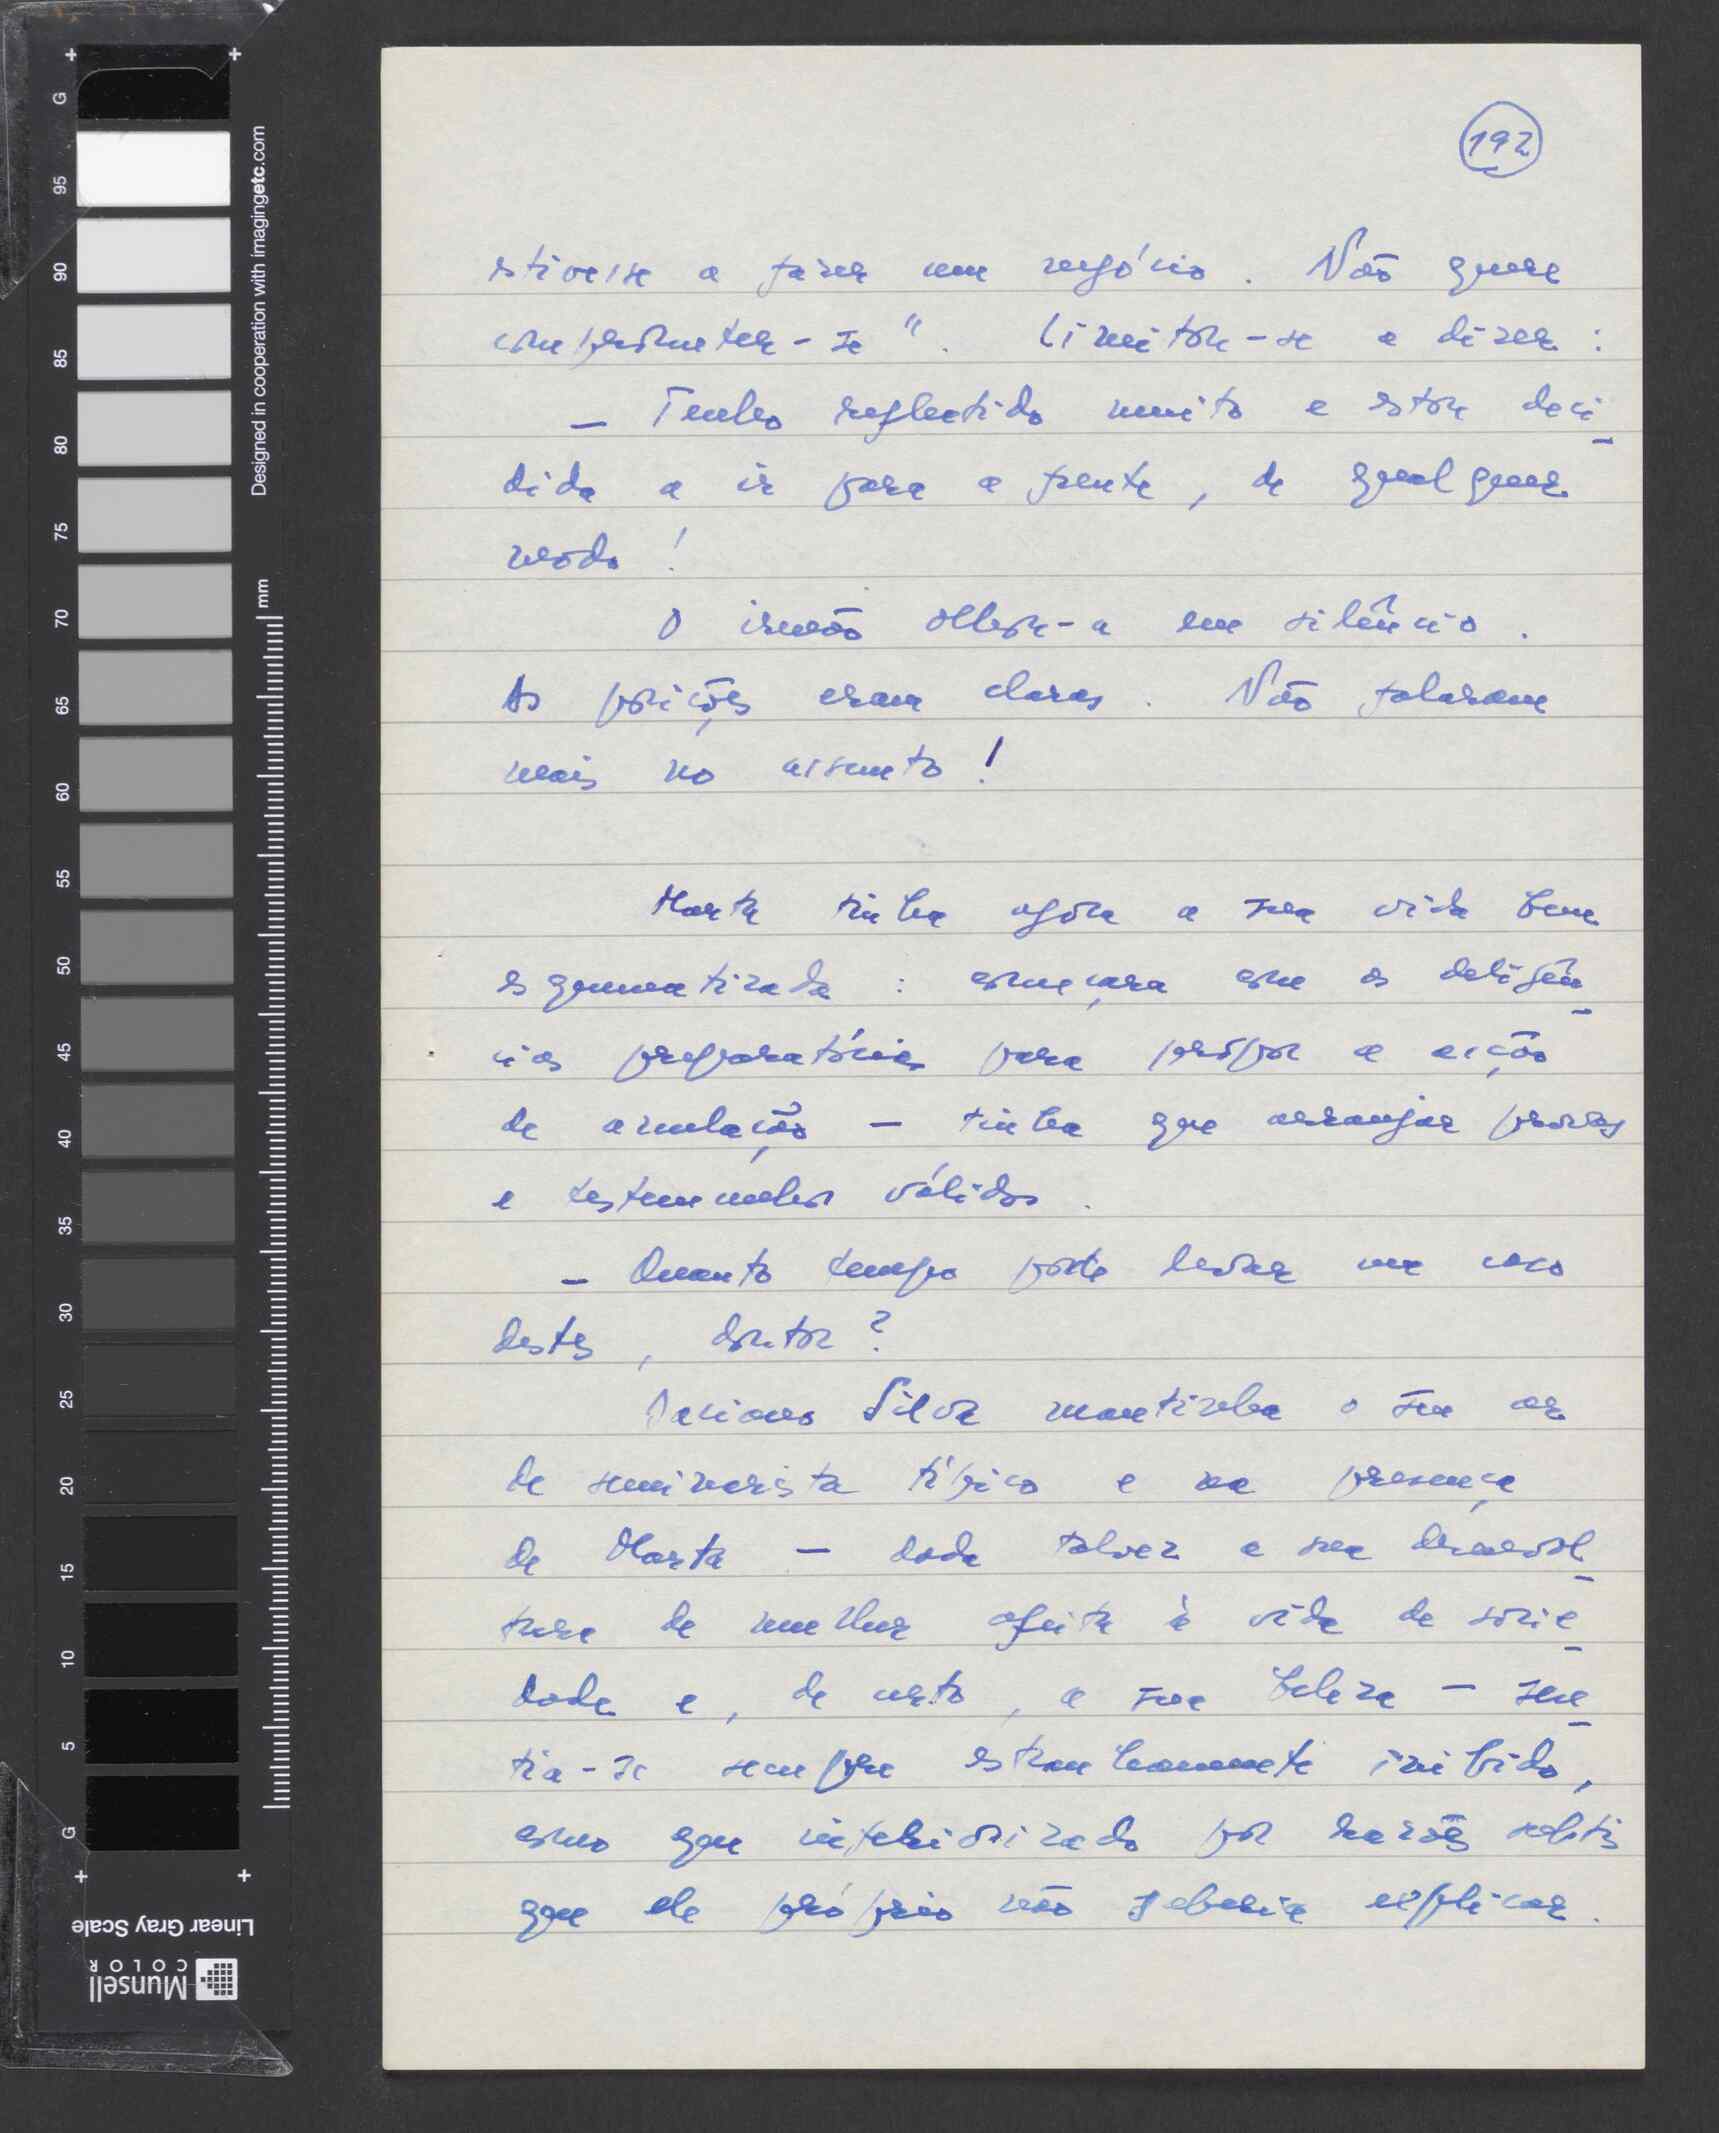 192
estivesse a fazer um negócio. Não quere
comprometer-se". Limitou-se a dizer:
— Tenho reflectido muito e estou deci-
dida a ir para a frente, de qualquer
modo!
O irmão olhou-a em silêncio.
As posições eram claras. Não falaram
mais no assunto!
Marta tinha agora a sua vida bem
esquematizada: começara com as deligên-
cias preparatórias para propor a acção
de anulação — tinha que arranjar provas
e testemunhos válidos.
— Quanto tempo pode levar um caso
destes, doutor?
Daciano Silva mantinha o seu ar
de seminarista típico e na presença
de Marta — dada talvez a sua desenvol-
tura de mulher afeita à vida de socie-
dade e, de certo, a sua beleza — sen-
tia-se sempre estranhamente inibido,
como que inferiorizado por razões subtis
que ele próprio não saberia explicar.
G 95 90 85 80 75 70 65 60 55 50 45 40 35 30 25 20 15 10 5 G
Designed in cooperation with imagingetc.com
mm
Linear Gray Scale
Munsell
COLOR